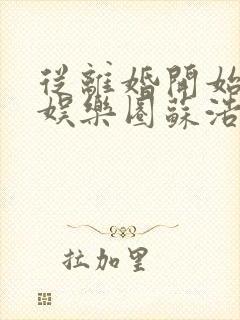 從離婚開始
娛樂圈蘇浩
拉加里